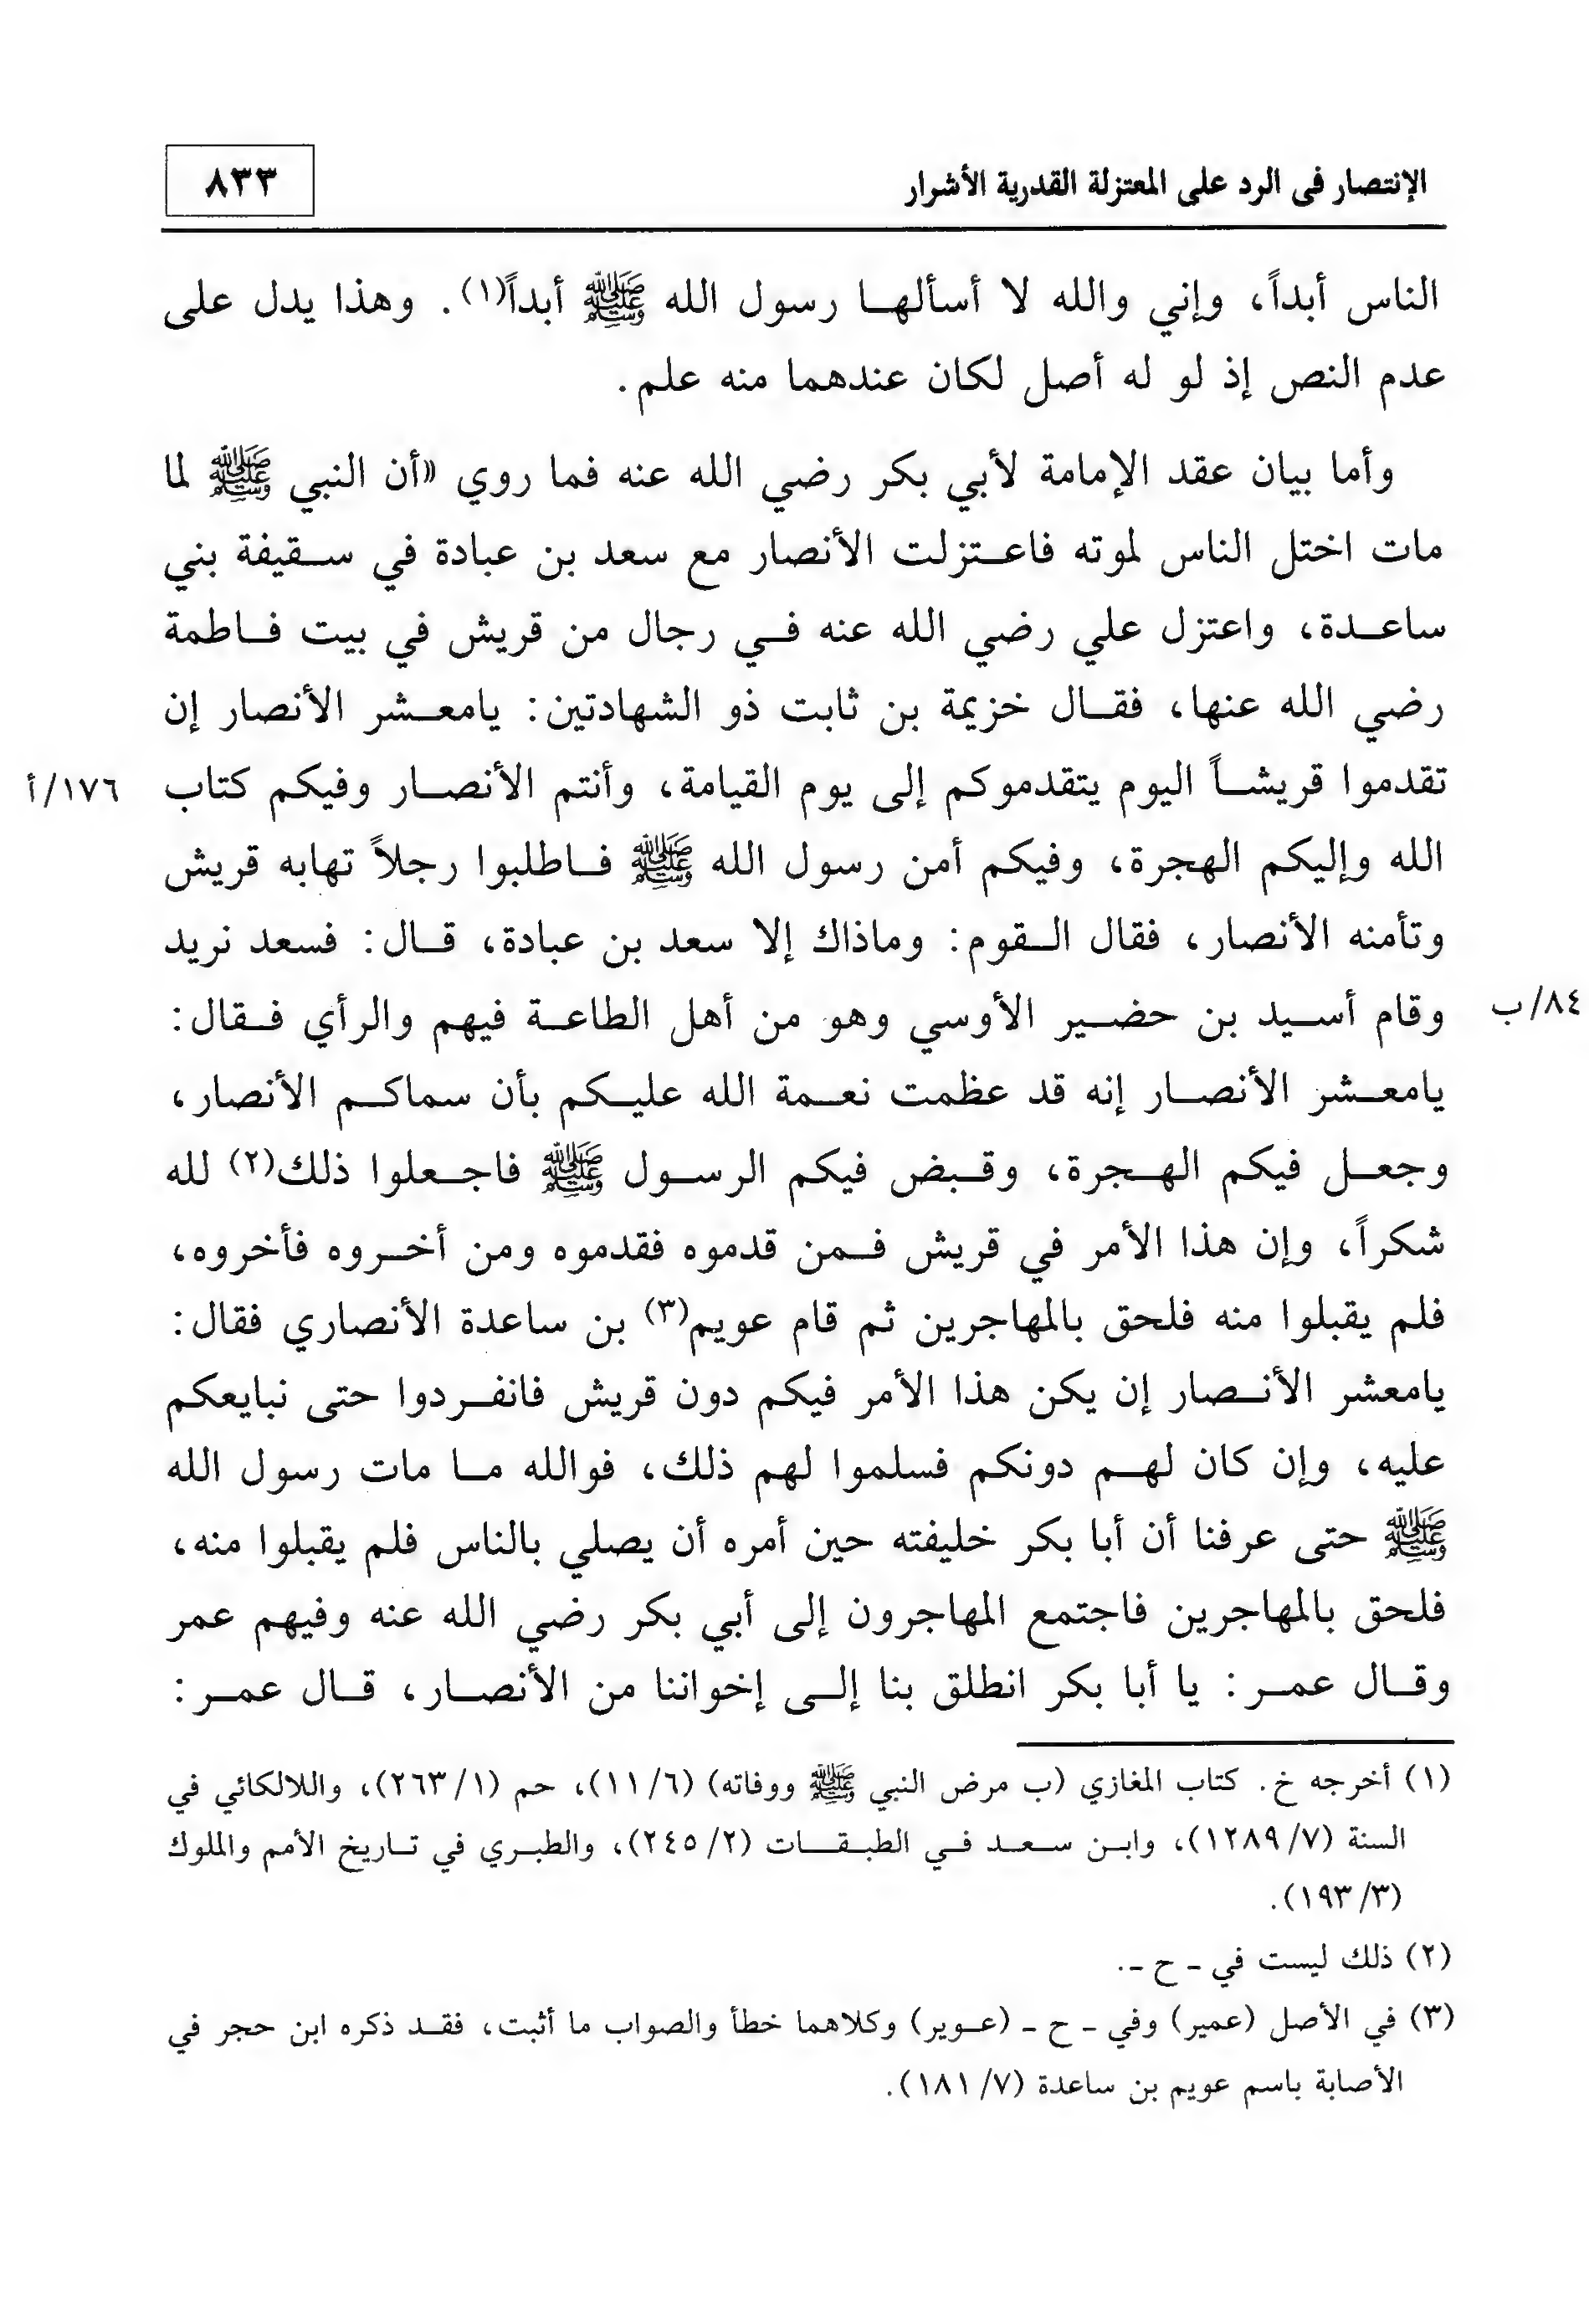 الإنتصار في الرد على المعتزلة القدرية الأشرار
٨٣٣
الناس أبداً، وإني والله لا أسألهـا رسول الله ﷺ أبداً(١). وهذا يدل على
عدم النص إذ لو له أصل لكان عندهما منه علم.
وأما بيان عقد الإمامة لأبي بكر رضي الله عنه فما روي «أن النبي ﷺ لما
مات اختل الناس لموته فاعـتزلت الأنصار مع سعد بن عبادة في سـقيفة بني
ساعـدة، واعتزل علي رضي الله عنه فـي رجال من قريش في بيت فـاطمة
رضي الله عنها، فقـال خزيمة بن ثابت ذو الشهادتين: يامعـشر الأنصار إن
تقدموا قريشـاً اليوم يتقدموكم إلى يوم القيامة، وأنتم الأنصـار وفيكم كتاب
١٧٦/أ
الله وإليكم الهجرة، وفيكم أمن رسول الله ﷺ فـاطلبوا رجلاً تهابه قريش
وتأمنه الأنصار، فقال الـقوم: وماذاك إلا سعد بن عبادة، قـال: فسعد نريد
وقام أسـيد بن حضـير الأوسي وهو من أهل الطاعـة فيهم والرأي فـقال:
٨٤/ب
يامعـشر الأنصـار إنه قد عظمت نعـمة الله عليـكم بأن سماكـم الأنصار،
وجعـل فيكم الهـجرة، وقـبض فيكم الرسـول ﷺ فاجـعلوا ذلك(٢) لله
شكراً، وإن هذا الأمر في قريش فـمن قدموه فقدموه ومن أخـروه فأخروه،
فلم يقبلوا منه فلحق بالمهاجرين ثم قام عويم(٣) بن ساعدة الأنصاري فقال:
يامعشر الأنـصار إن يكن هذا الأمر فيكم دون قريش فانفـردوا حتى نبايعكم
عليه، وإن كان لهـم دونكم فسلموا لهم ذلك، فوالله مـا مات رسول الله
ﷺ حتى عرفنا أن أبا بكر خليفته حين أمره أن يصلي بالناس فلم يقبلوا منه،
فلحق بالمهاجرين فاجتمع المهاجرون إلى أبي بكر رضي الله عنه وفيهم عمر
وقـال عمـر: يا أبا بكر انطلق بنا إلـى إخواننا من الأنصـار، قـال عمـر:
(١) أخرجه خ. كتاب المغازي (ب مرض النبي ﷺ ووفاته) (١١/٦)، حم (٢٦٣/١)، واللالكائي في
السنة (١٢٨٩/٧)، وابـن سـعـد فـي الطبـقـات (٢٤٥/٢)، والطبـري في تـاريخ الأمم والملوك
(١٩٣/٣).
(٢) ذلك ليست في - ح -.
(٣) في الأصل (عمير) وفي - ح - (عـوير) وكلاهما خطأ والصواب ما أثبت، فقـد ذكره ابن حجر في
الأصابة باسم عويم بن ساعدة (١٨١/٧).